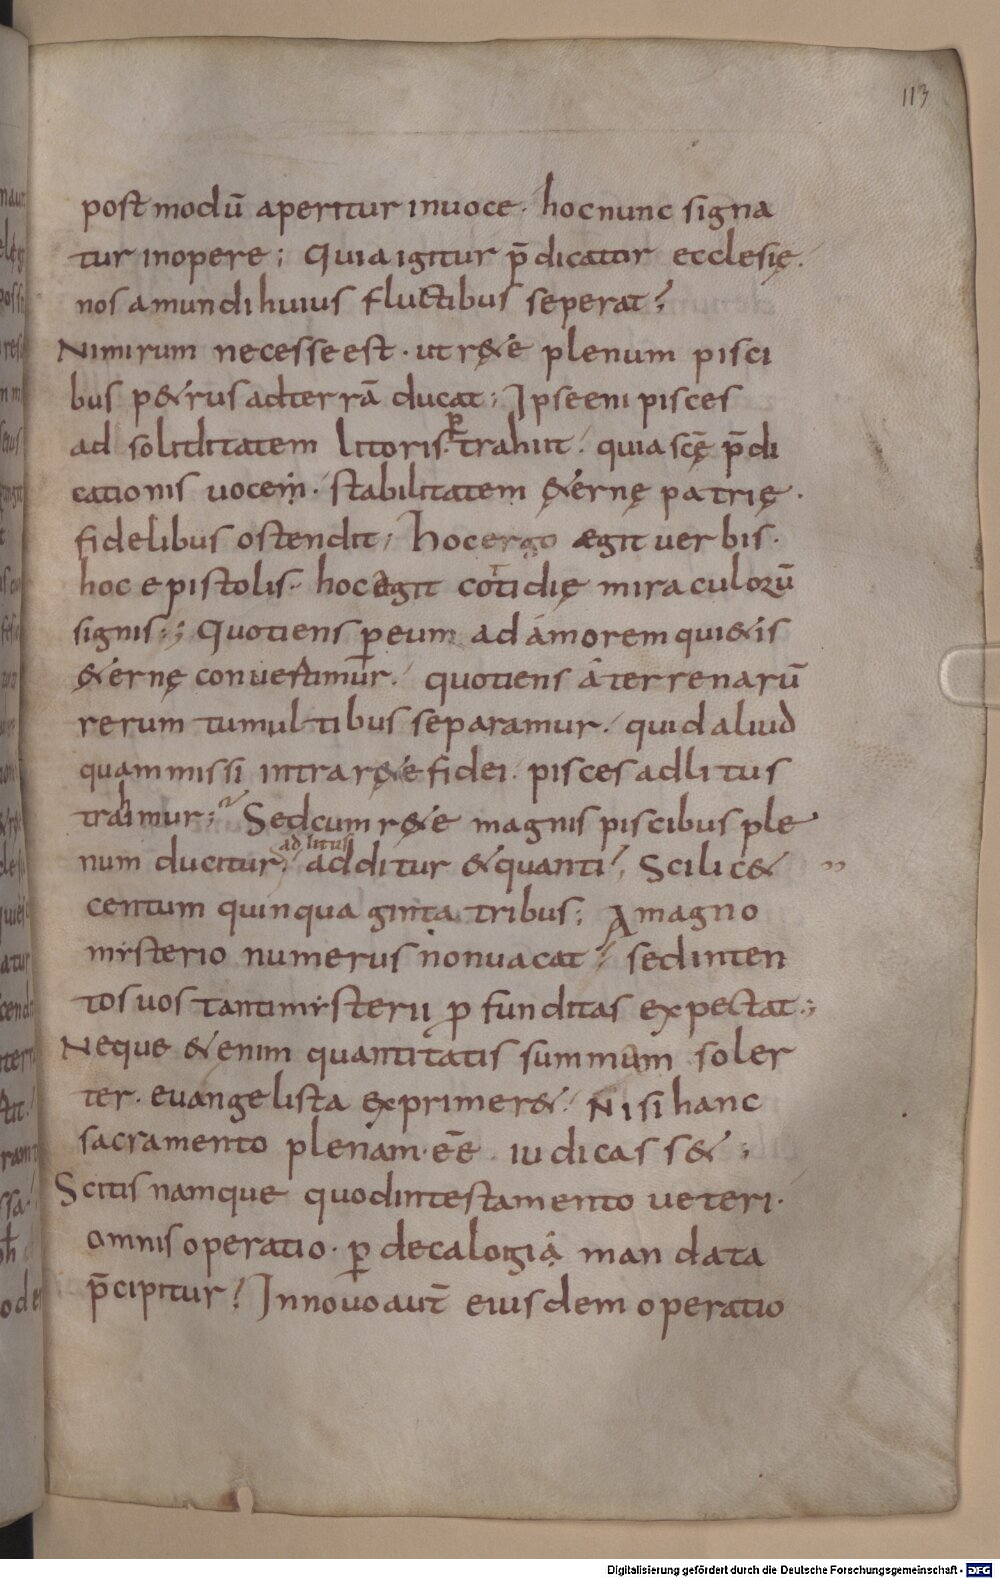 113
post modū aperitur in uoce · hoc nunc signa
tur in opere ; Quia igitur p̄dicator ecclesię .
nos a mundi huius fluctibus seperat ;
Nimirum necesse est · ut r&e plenum pisci
bus p&rus ad terrā ducat ; Ipse eni pisces
ad soliditatem litoris · ꝑtrahit · quia scę̄ p̄di
cationis uocem · stabilitatem &ernę patrię ·
fidelibus ostendit ; Hoc ergo ægit uerbis ·
hoc epistolis · hoc ægit cotidię miraculorū
signis ; Quotiens ꝑ eum ad amorem qui&is
&ernę conuertimur · quotiens a terrenarū
rerum tumultibus separamur · quid aliud
quam missi intra r&e fidei · pisces ad litus
trahimur ; Sed cum r&e magnis piscibus ple
ad litus
num ducitur · additur & quanti ; Scilic&
centum quinquaginta tribus ; A magno
mysterio numerus non uacat ; sed inten
tos uos tanti mysterii ꝓfunditas expectat ;
Neque &enim quantitatis summum soler
ter · euangelista exprimer& · Nisi hanc
sacramento plenam · ēe · iudicass& ;
Scitis namque quod in testamento ueteri ·
omnis operatio · ꝑ decalogia mandata
p̄cipitur ; In nouo aut̄ eiusdem operatio
Digitalisierung gefördert durch die Deutsche Forschungsgemeinschaft - DFG